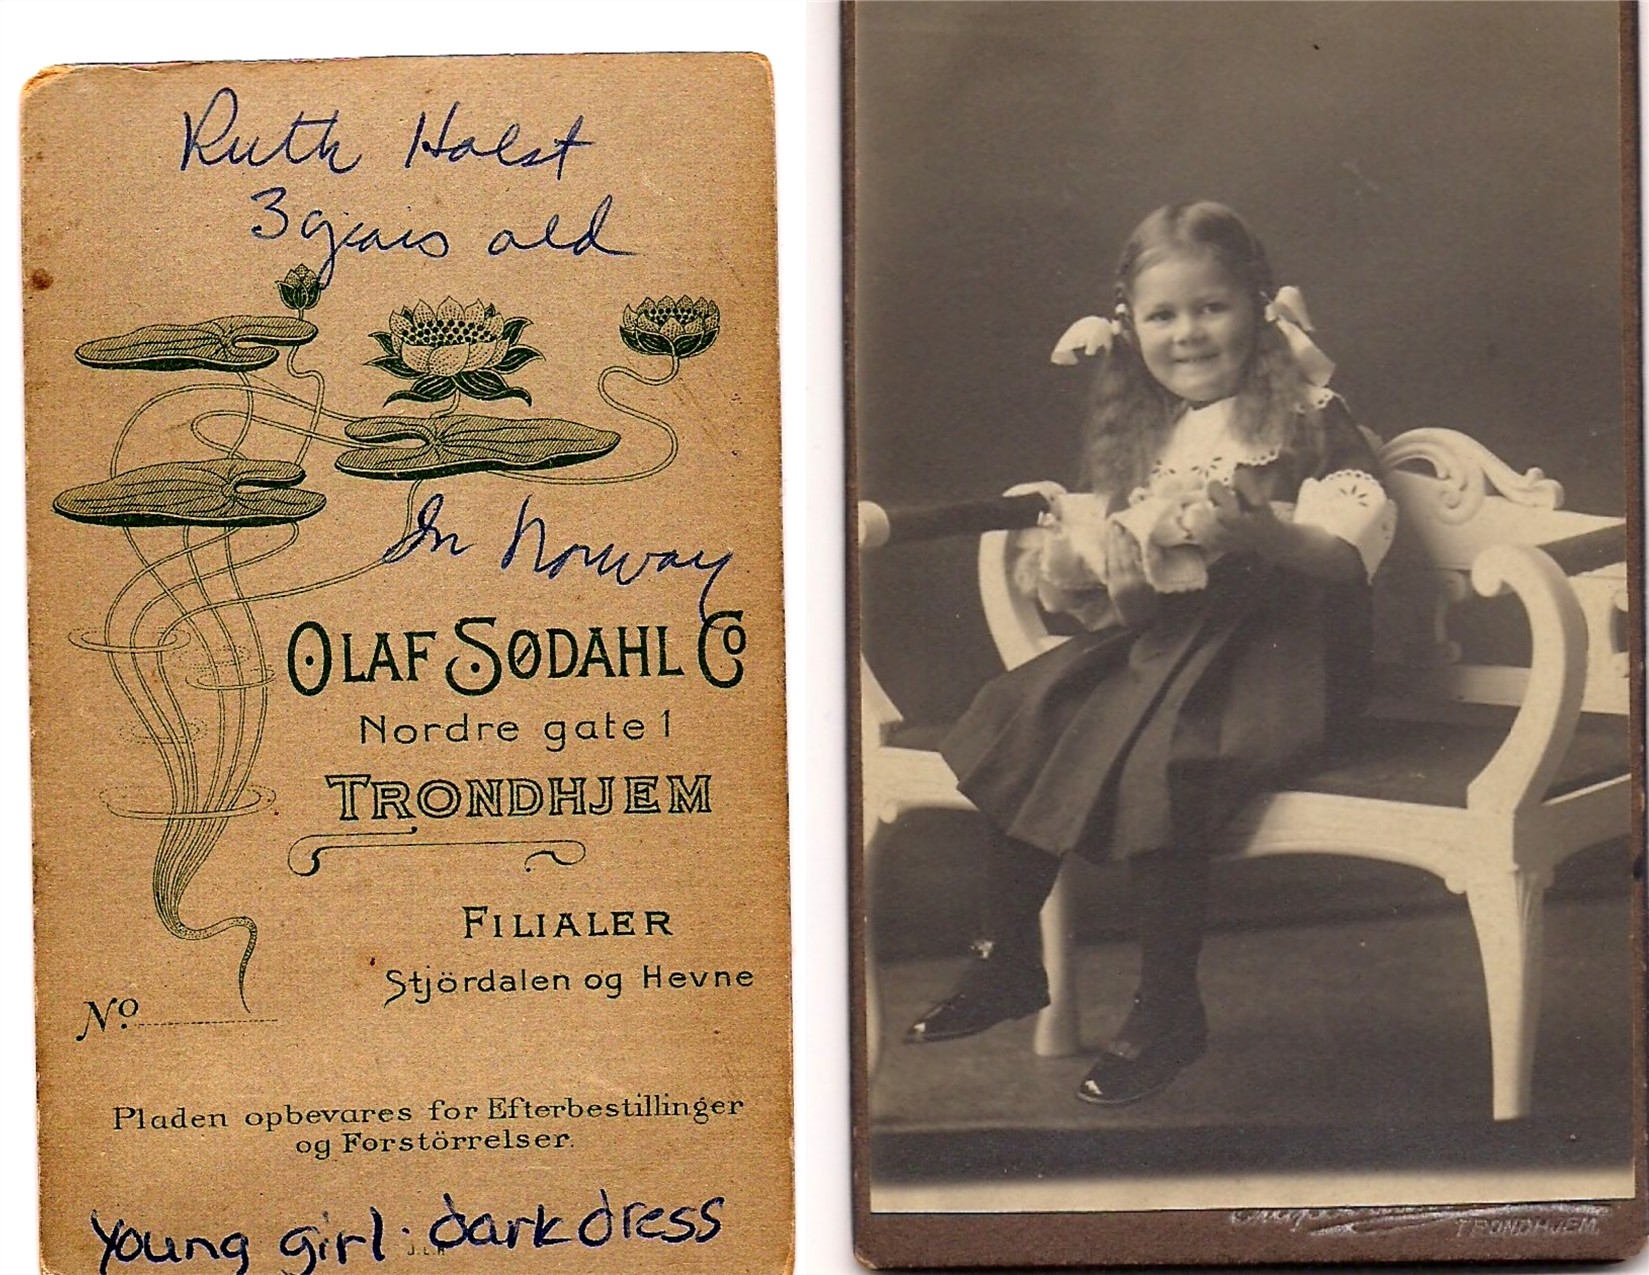 Ruth Holst
3 years old
In Norway
OLAF SØDAHL Co
Nordre gate 1
TRONDHJEM
FILIALER
Stjördalen og Hevne
No.
Pladen opbevares for Efterbestillinger
og Forstörrelser.
Young girl. dark dress
TRONDHJEM.